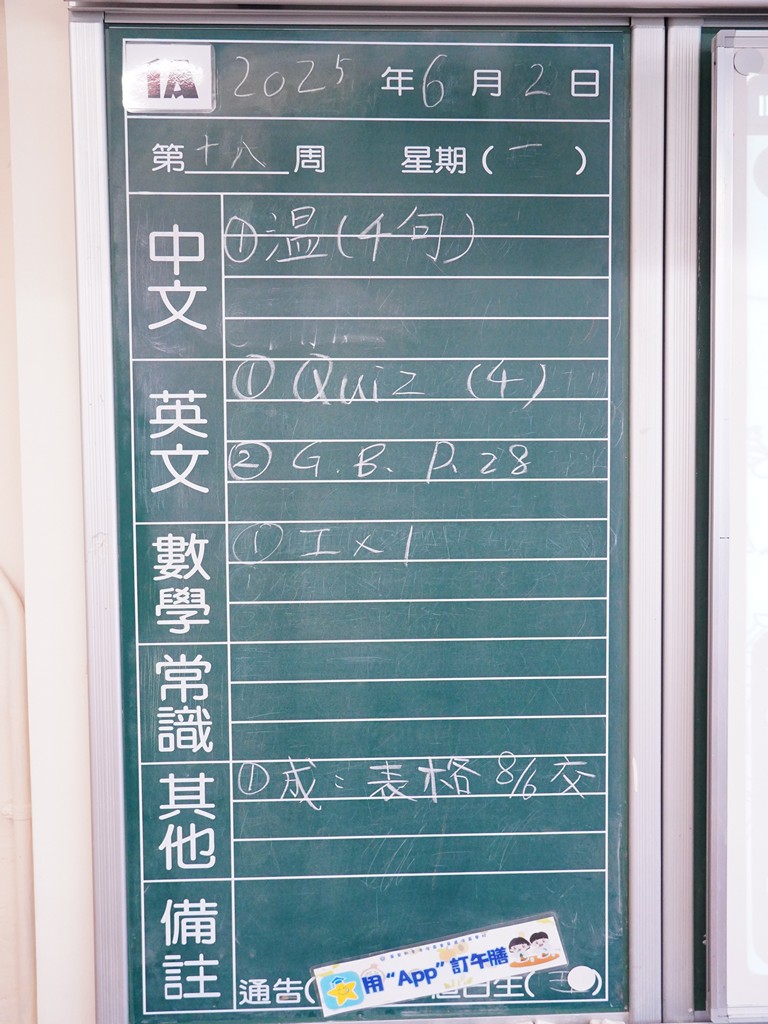 1A 2025 年 6 月 2 日
第 十八 周 星期 ( 一 )
中文
① 温 (4句)
英文
① Quiz (4)
② G.B. P.28
數學
① 工 x 1
常識
其他
① 成：表格 8/6 交
備註
用 “App” 訂午膳
通告(